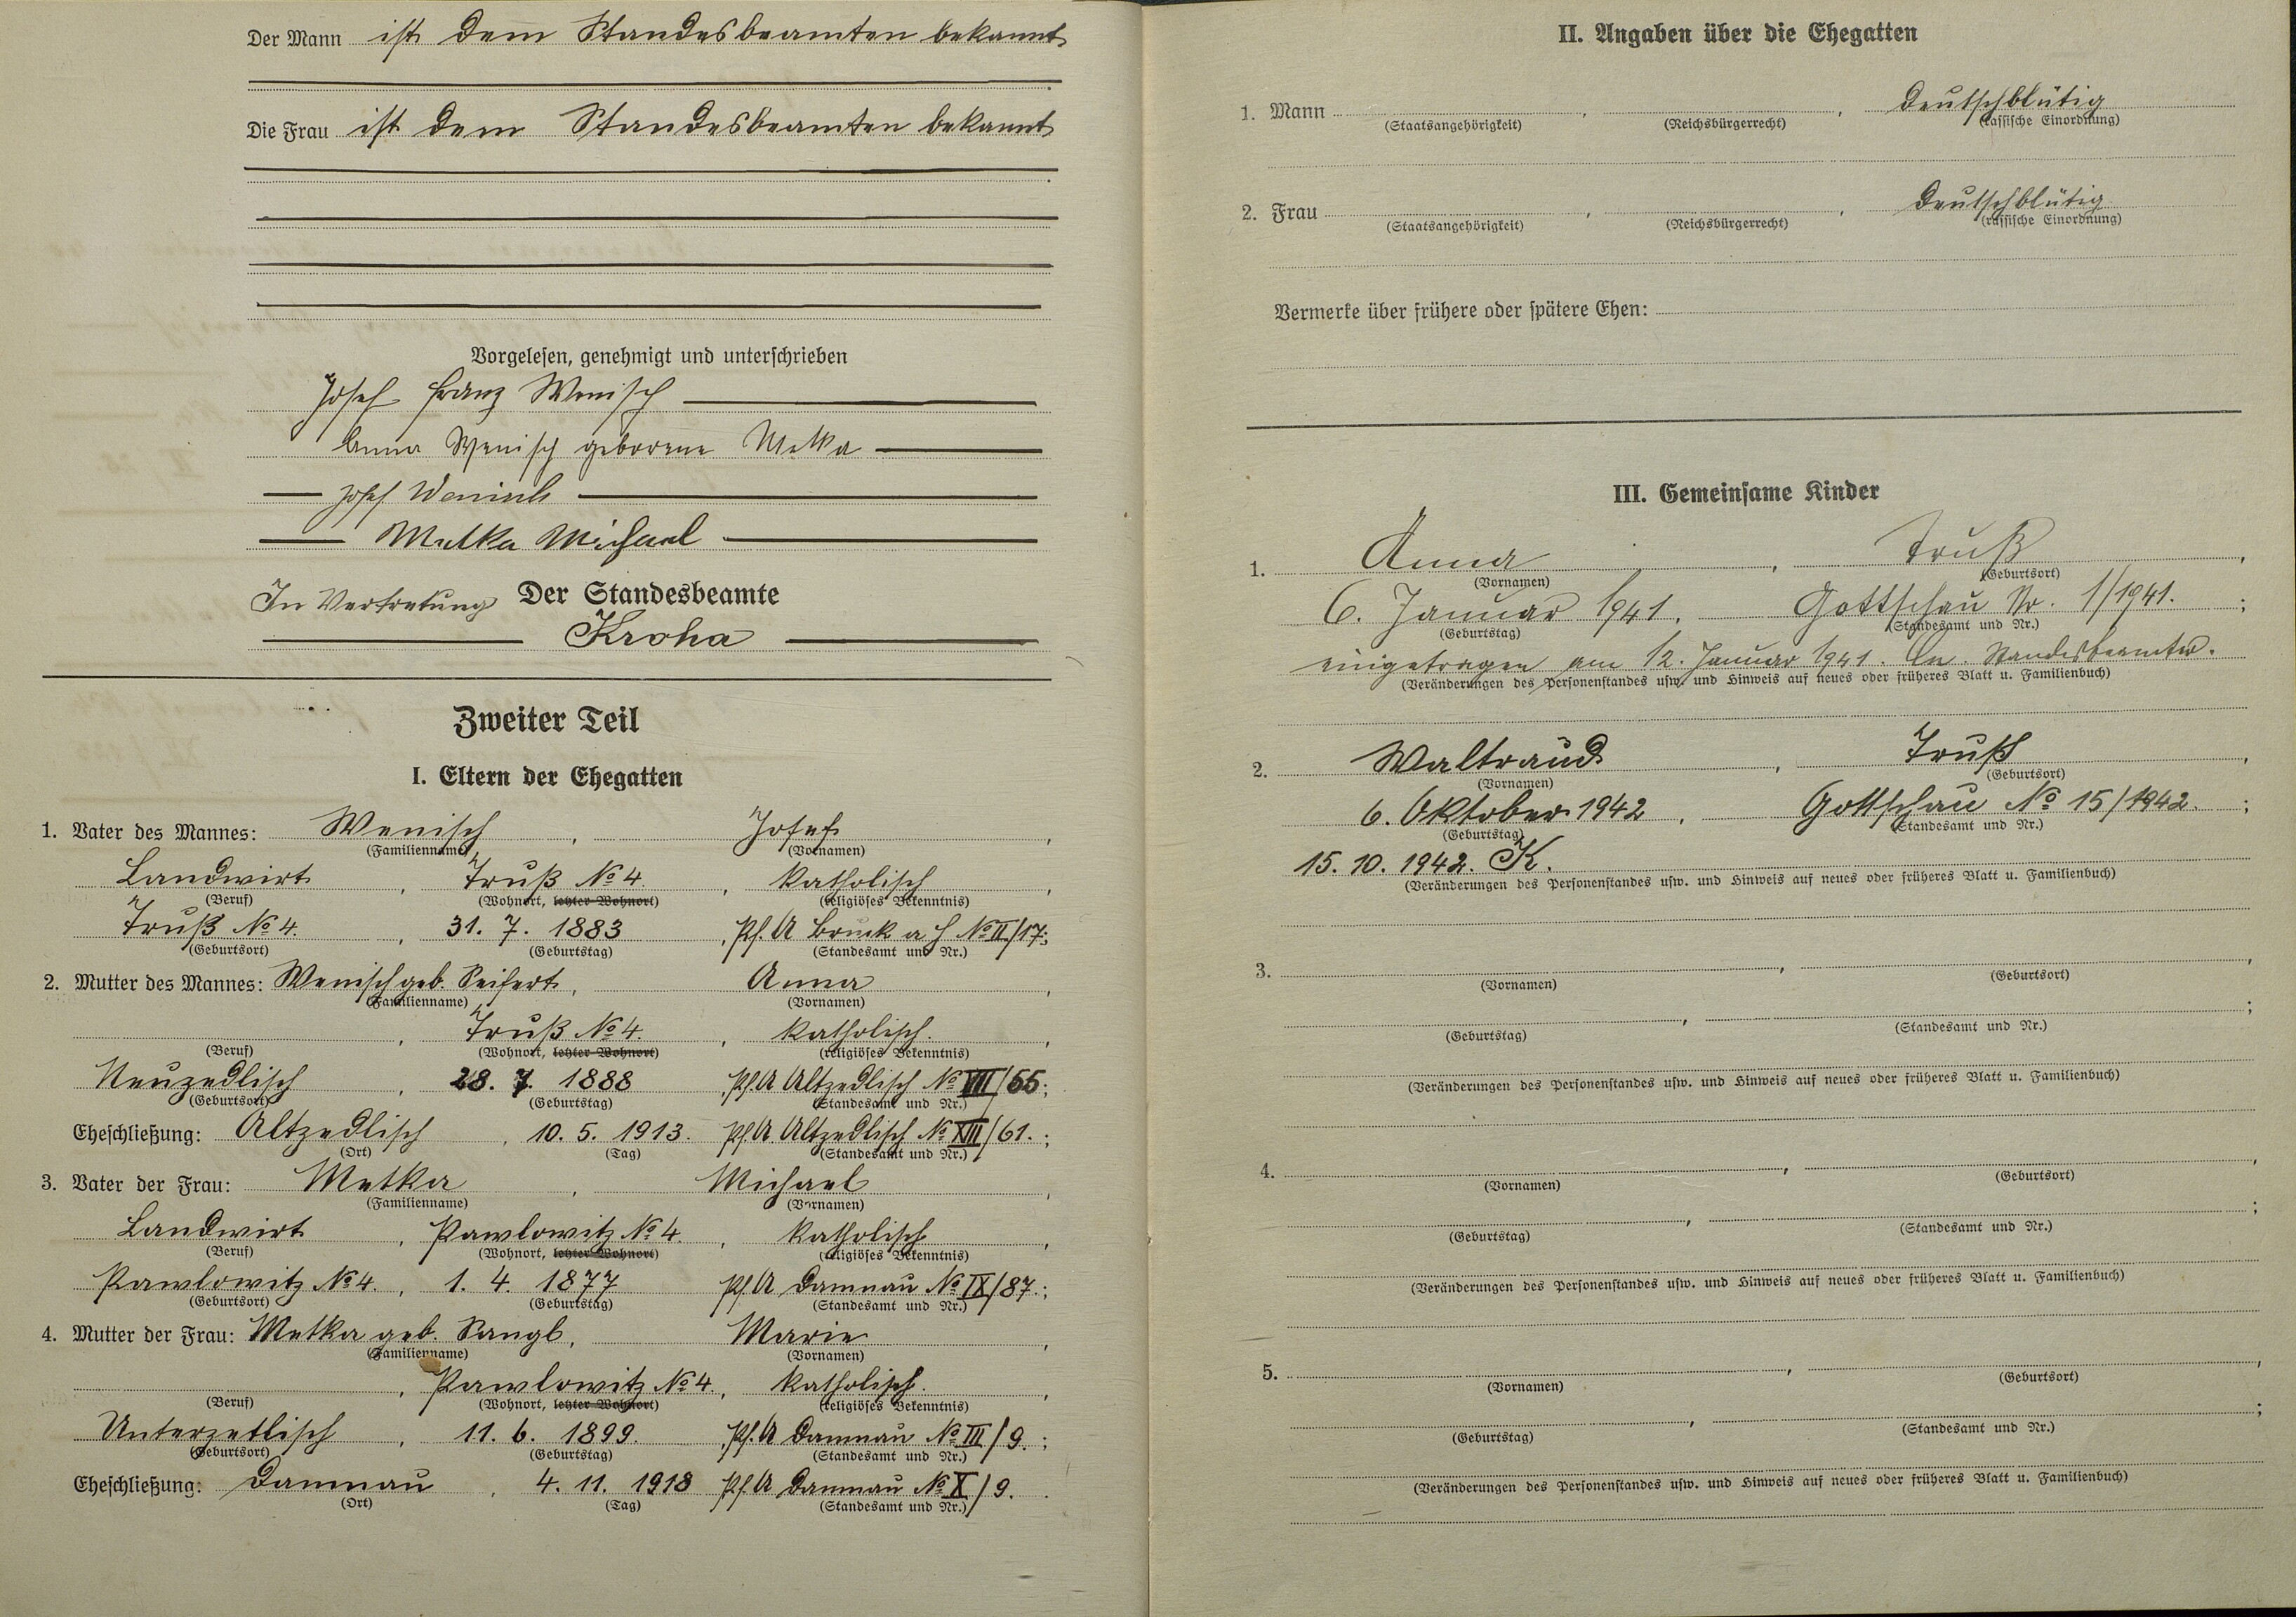 Der Mann ist dem Standesbeamten bekannt
Die Frau ist dem Standesbeamten bekannt
Vorgelesen, genehmigt und unterschrieben
Josef Franz Wenisch
Anna Wenisch geborene Metka
Josef Wenisch
Metka Michael
In Vertretung Der Standesbeamte
Kroha
Zweiter Teil
I. Eltern der Ehegatten
1. Vater des Mannes: Wenisch, Josef,
(Familienname) (Vornamen)
Landwirt, Truß No 4, katholisch,
(Beruf) (Wohnort, letzter Wohnort) (religiöses Bekenntnis)
Truß No 4., 31. 7. 1883, Pf. A Bruck a H No II/17;
(Geburtsort) (Geburtstag) (Standesamt und Nr.)
2. Mutter des Mannes: Wenisch geb. Seifert, Anna,
(Familienname) (Vornamen)
, Truß No 4., katholisch.,
(Beruf) (Wohnort, letzter Wohnort) (religiöses Bekenntnis)
Neuzedlisch, 28. 7. 1888, Pf. A Altzedlisch No VII/55;
(Geburtsort) (Geburtstag) (Standesamt und Nr.)
Eheschließung: Altzedlisch, 10. 5. 1913. Pf. A Altzedlisch No XIII/61.;
(Ort) (Tag) (Standesamt und Nr.)
3. Vater der Frau: Metka, Michael,
(Familienname) (Vornamen)
Landwirt, Pawlowitz No 4., katholisch,
(Beruf) (Wohnort, letzter Wohnort) (religiöses Bekenntnis)
Pawlowitz No 4., 1. 4. 1877 Pf. A Damnau No IX/87.;
(Geburtsort) (Geburtstag) (Standesamt und Nr.)
4. Mutter der Frau: Metka geb. Sangl, Marie,
(Familienname) (Vornamen)
, Pawlowitz No 4., katholisch.,
(Beruf) (Wohnort, letzter Wohnort) (religiöses Bekenntnis)
Unterzetlisch, 11. 6. 1899., Pf. A Damnau No III/9.;
(Geburtsort) (Geburtstag) (Standesamt und Nr.)
Eheschließung: Damnau, 4. 11. 1918 Pf. A Damnau No X/9.
(Ort) (Tag) (Standesamt und Nr.)
II. Angaben über die Ehegatten
1. Mann , , deutschblütig
(Staatsangehörigkeit) (Reichsbürgerrecht) (rassische Einordnung)
2. Frau , , deutschblütig
(Staatsangehörigkeit) (Reichsbürgerrecht) (rassische Einordnung)
Vermerke über frühere oder spätere Ehen:
III. Gemeinsame Kinder
1. Anna, Truß,
(Vornamen) (Geburtsort)
6. Januar 1941, Gottschau Nr. 1/1941.;
(Geburtstag) (Standesamt und Nr.)
eingetragen am 12. Januar 1941. Standesbeamter.
(Veränderungen des Personenstandes usw. und Hinweis auf neues oder früheres Blatt u. Familienbuch)
2. Waltraud, Truß,
(Vornamen) (Geburtsort)
6. Oktober 1942, Gottschau No 15/1942.;
(Geburtstag) (Standesamt und Nr.)
15. 10. 1942. K.
(Veränderungen des Personenstandes usw. und Hinweis auf neues oder früheres Blatt u. Familienbuch)
3. , ,
(Vornamen) (Geburtsort)
, ;
(Geburtstag) (Standesamt und Nr.)
(Veränderungen des Personenstandes usw. und Hinweis auf neues oder früheres Blatt u. Familienbuch)
4. , ,
(Vornamen) (Geburtsort)
, ;
(Geburtstag) (Standesamt und Nr.)
(Veränderungen des Personenstandes usw. und Hinweis auf neues oder früheres Blatt u. Familienbuch)
5. , ,
(Vornamen) (Geburtsort)
, ;
(Geburtstag) (Standesamt und Nr.)
(Veränderungen des Personenstandes usw. und Hinweis auf neues oder früheres Blatt u. Familienbuch)